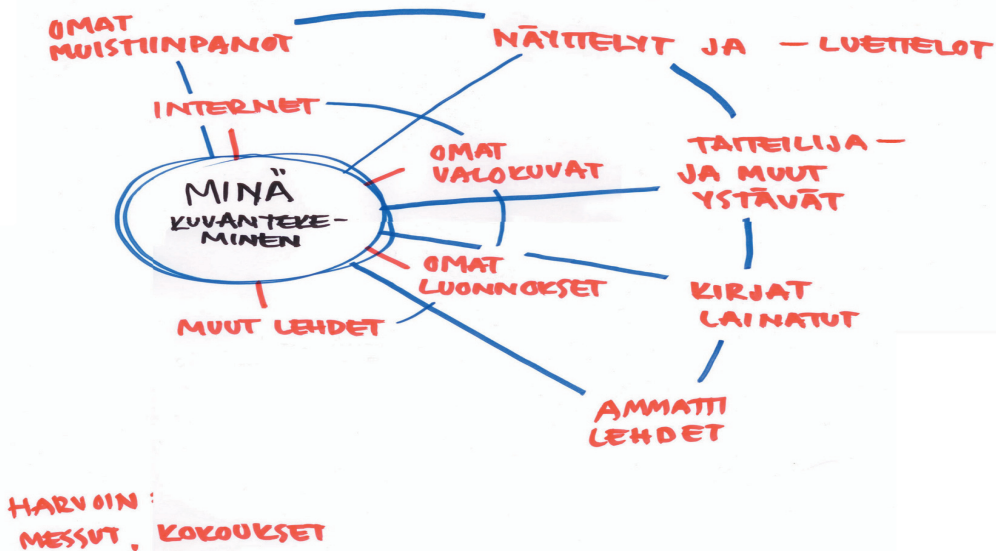 OMAT
MUISTIINPANOT
NÄYTTELYT JA – LUETTELOT
INTERNET
TAITEILIJA –
JA MUUT
YSTÄVÄT
OMAT
VALOKUVAT
MINÄ
KUVANTEKE-
MINEN
OMAT
LUONNOKSET
KIRJAT
LAINATUT
MUUT LEHDET
AMMATTI
LEHDET
HARVOIN:
MESSUT, KOKOUKSET